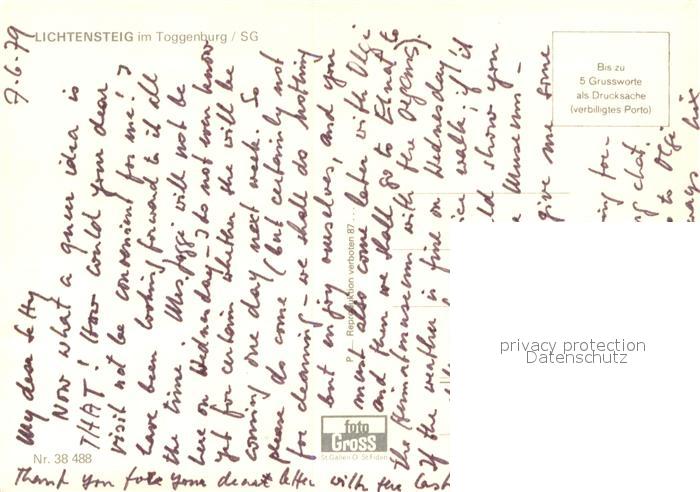 LICHTENSTEIG im Toggenburg / SG
7.6.79
My dear Letty
Now what a queer idea is
THAT! (How could your dear
visit not be convenient for me!) I
have been looking forward to it all
the time. Mrs. Jaggi will not be
here on Wednesday - I do not even know
yet for certain whether she will be
coming one day next week. So
please do come (but certainly not
for cleaning - we shall do nothing
but enjoy ourselves, and you
must also come later with Olgi
and then we shall go to Ebnat to
the Heimatmuseum with the organs).
If the weather is fine on Wednesday
ice walk, if it
ld show you
Museum -
give me some
ing for-
ng chat.
e to Olgi
says
Thank you for your dearest letter with the last
Bis zu
5 Grussworte
als Drucksache
(verbilligtes Porto)
P ... Reproduktion verboten 87 ...
foto
Gross
St. Gallen O St. Fiden
Nr. 38 488
privacy protection
Datenschutz